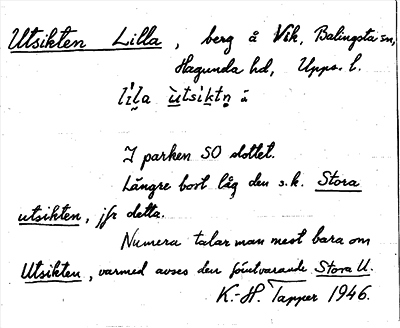 Utsikten Lilla, berg å Vik, Balingsta sn,
Hagunda hd, Upps. l.
I parken SO slottet.
Längre bort låg den s.k. Stora
utsikten, jfr detta.
Numera talar man mest bara om
Utsikten, varmed avses den förutvarande Stora U.
K.-H. Tapper 1946.